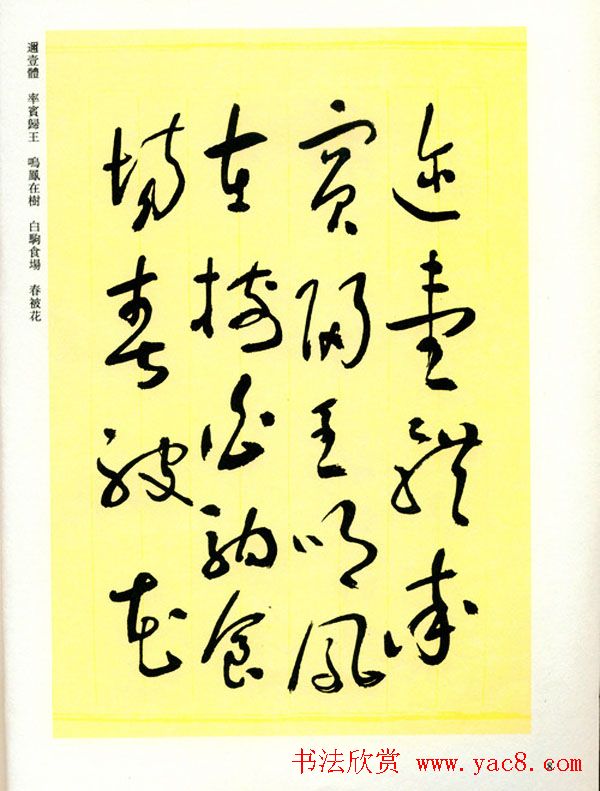 邇壹體率
賓歸王鳴鳳
在樹白駒食
場春被花
邇壹體 率賓歸王 鳴鳳在樹 白駒食場 春被花
书法欣赏 www.yac8.com